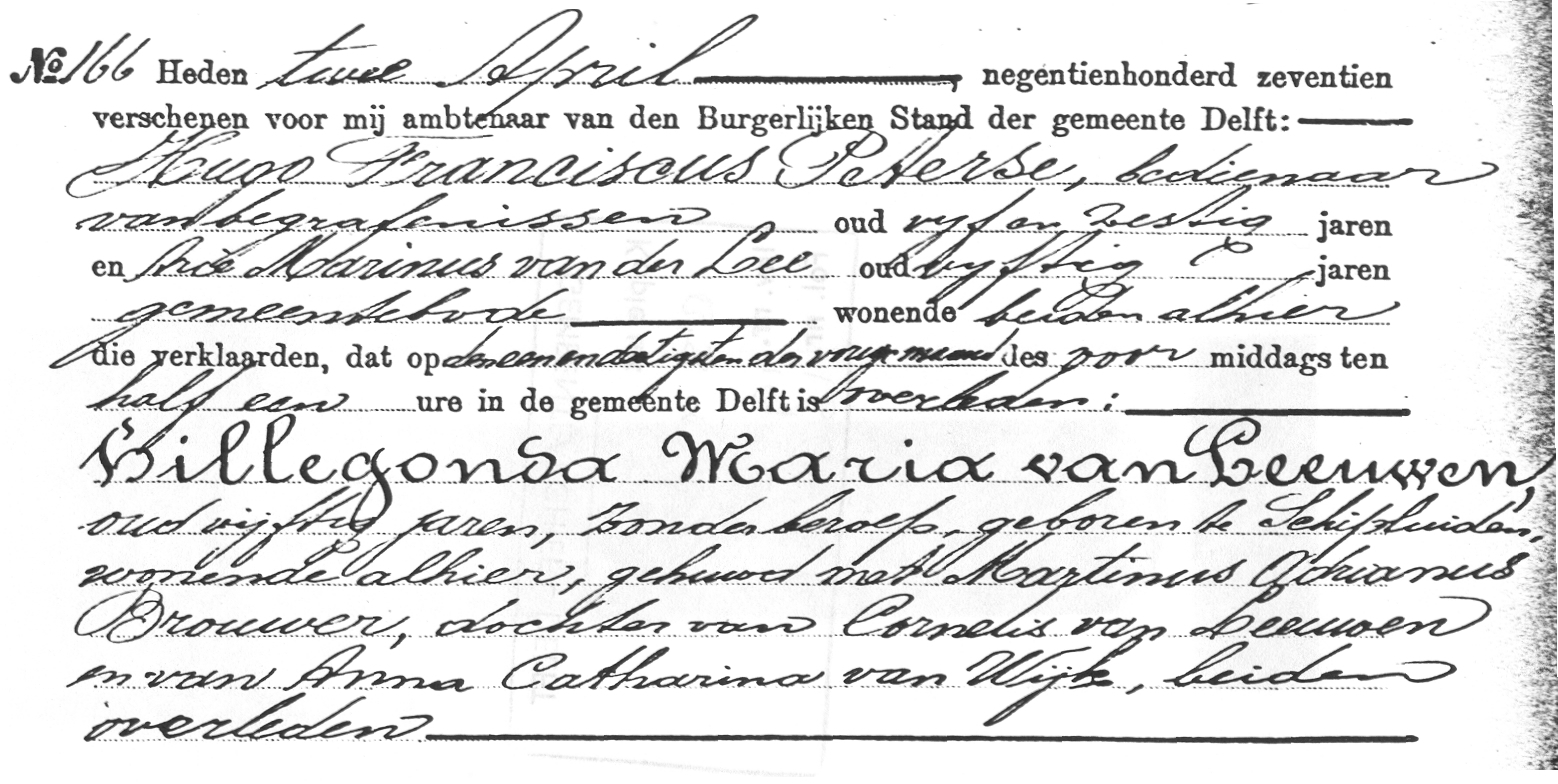 No 166 Heden twee April, negentienhonderd zeventien
verschenen voor mij ambtenaar van den Burgerlijken Stand der gemeente Delft:
Hugo Franciscus Peterse, bedienaar
van begrafenissen oud vyf en zestig jaren
en Arie Marinus van der Lee oud vyftig jaren
gemeentebode wonende beiden alhier
die verklaarden, dat op den een en dertigsten der vorige maand des voor middags ten
half een ure in de gemeente Delft is overleden:
Willegonda Maria van Leeuwen,
oud vijftig jaren, zonder beroep, geboren te Schipluiden,
wonende alhier, gehuwd met Martinus Adrianus
Brouwer, dochter van Cornelis van Leeuwen
en van Anna Catharina van Wijk, beiden
overleden